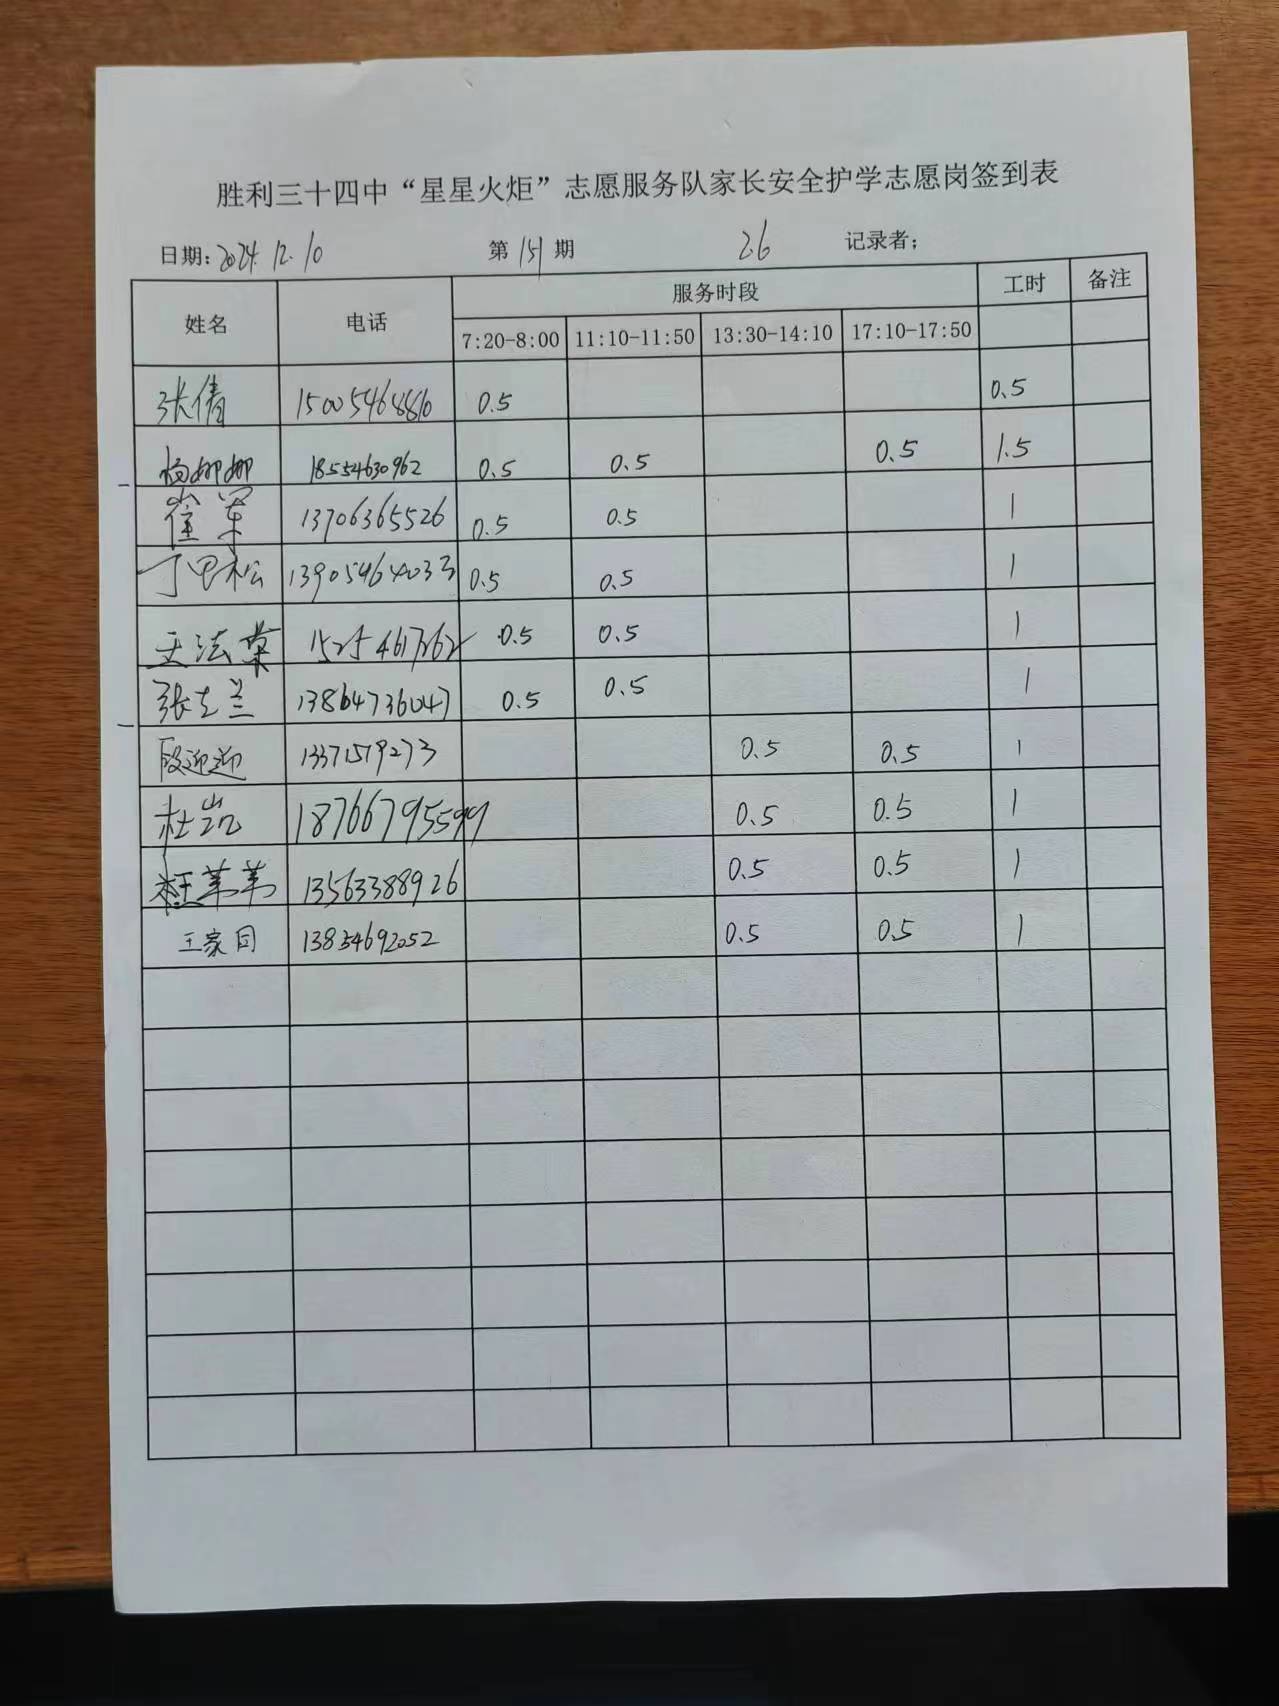 胜利三十四中“星星火炬”志愿服务队家长安全护学志愿岗签到表
日期: 2024.12.10 第151期 2.6 记录者;
姓名 电话 服务时段 工时 备注
7:20-8:00 11:10-11:50 13:30-14:10 17:10-17:50
张倩 15005468810 0.5 0.5
杨娜娜 18554630962 0.5 0.5 0.5 1.5
崔军 13706365526 0.5 0.5 1
13905464033 0.5 0.5 1
王法荣 0.5 0.5 1
张立兰 13864736047 0.5 0.5 1
段迎迎 13371519273 0.5 0.5 1
杜凯 18766795599 0.5 0.5 1
13563388926 0.5 0.5 1
王家同 13854692052 0.5 0.5 1